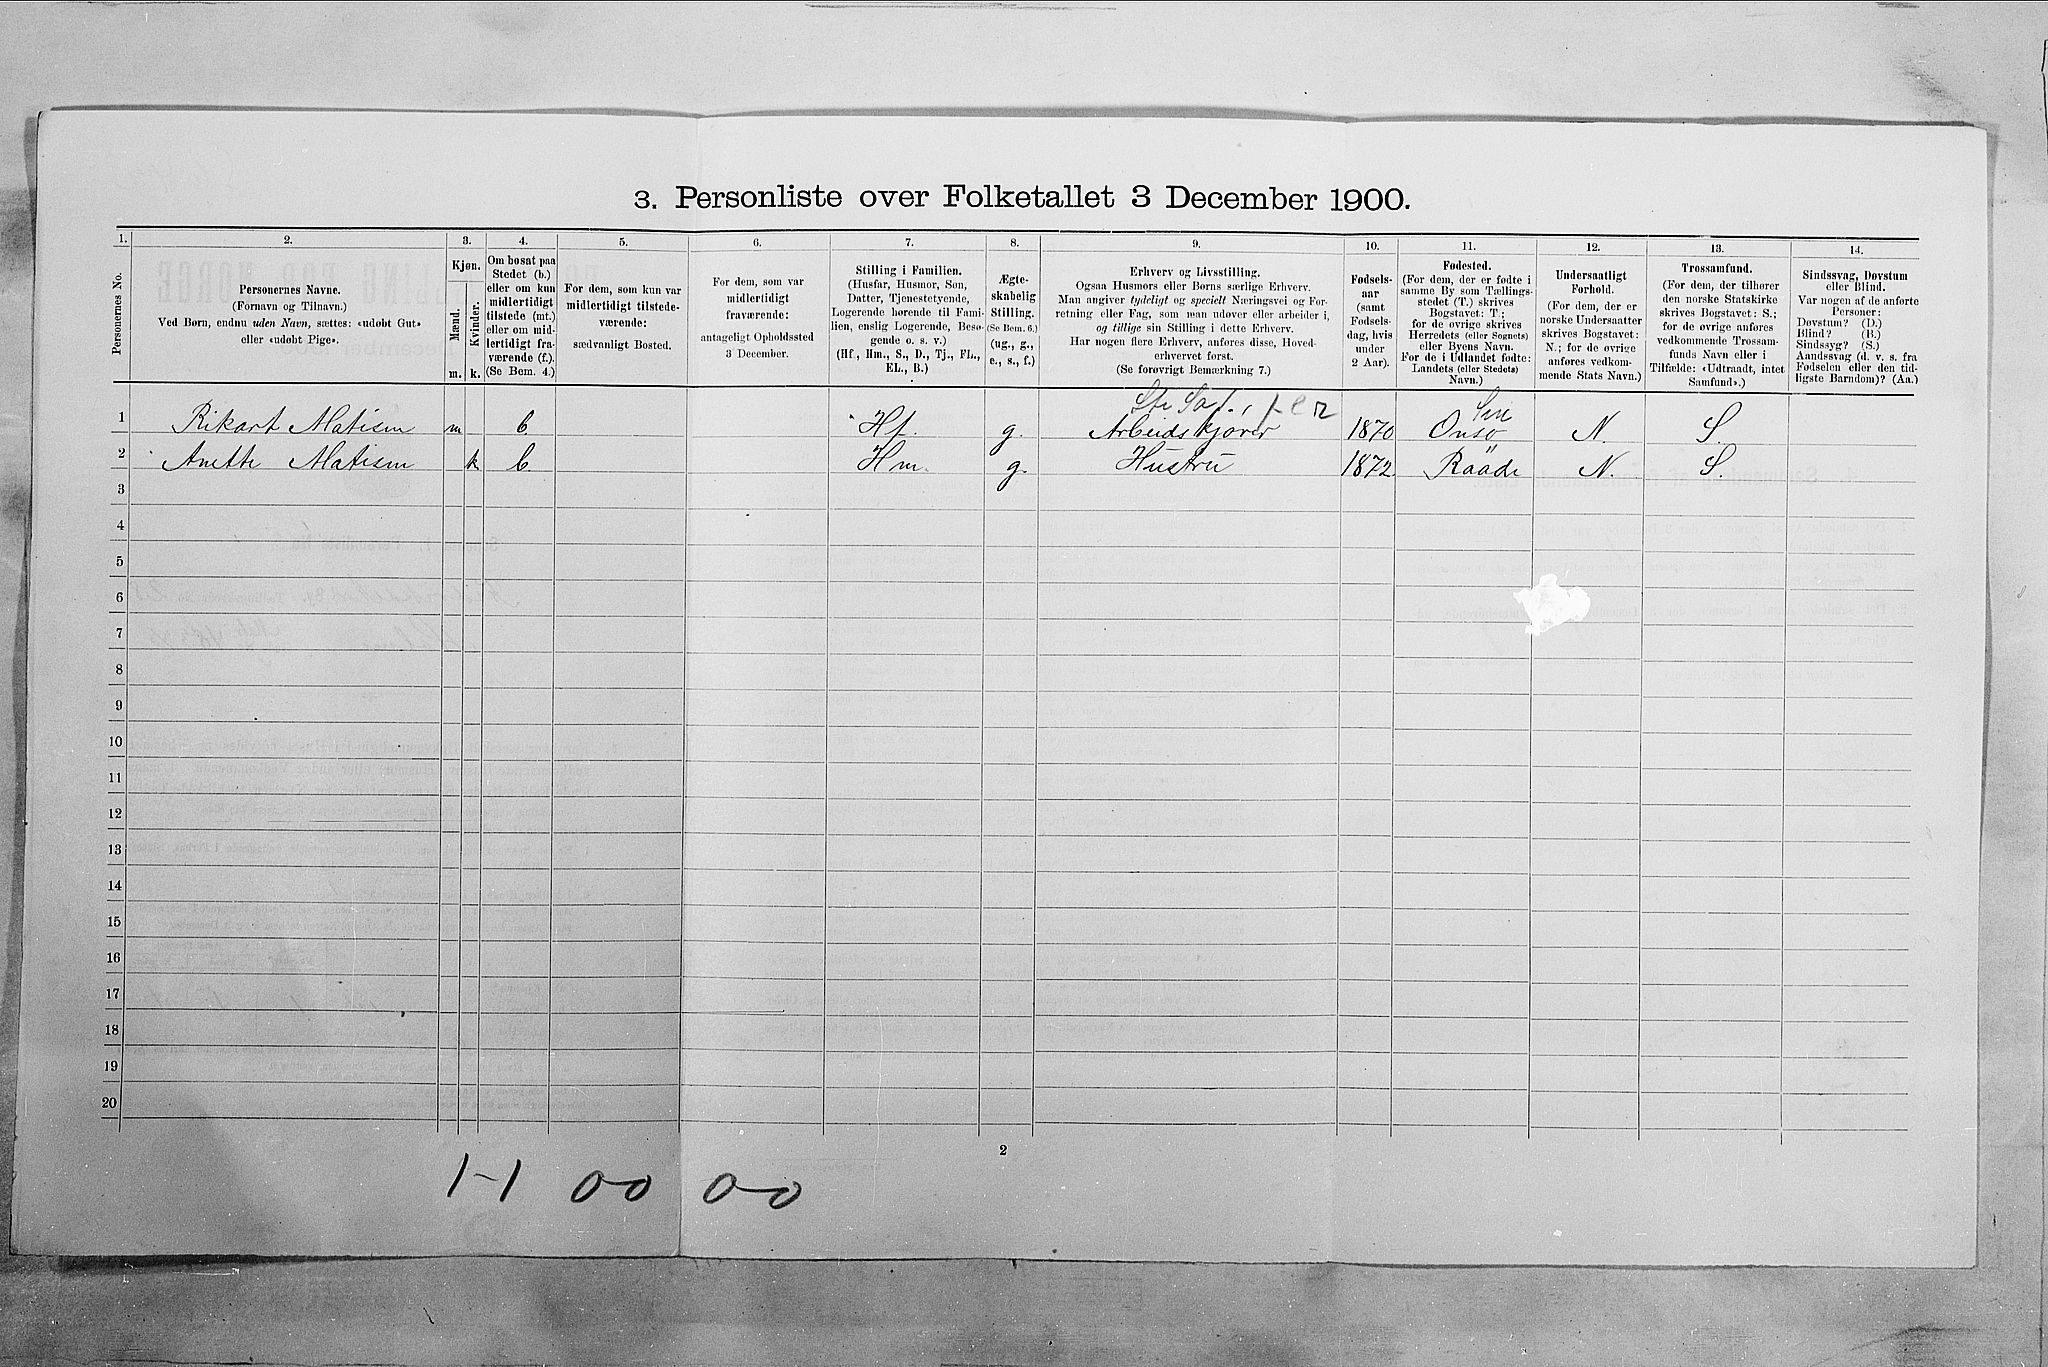 3. Personliste over Folketallet 3 December 1900.
1. 2. 3. 4. 5. 6. 7. 8. 9. 10. 11. 12. 13. 14.
Personernes No.
Personernes Navne.
(Fornavn og Tilnavn.)
Ved Børn, endnu uden Navn, sættes: «udøbt Gut»
eller «udøbt Pige».
Kjøn.
Mænd.
Kvinder.
m. k.
Om bosat paa
Stedet (b.)
eller om kun
midlertidigt
tilstede (mt.)
eller om mid-
lertidigt fra-
værende (f.).
(Se Bem. 4.)
For dem, som kun var
midlertidigt tilstede-
værende:
sædvanligt Bosted.
For dem, som var
midlertidigt
fraværende:
antageligt Opholdssted
3 December.
Stilling i Familien.
(Husfar, Husmor, Søn,
Datter, Tjenestetyende,
Logerende hørende til Fami-
lien, enslig Logerende, Besø-
gende o. s. v.)
(Hf., Hm., S., D., Tj., FL.,
EL., B.)
Ægte-
skabelig
Stilling.
(Se Bem. 6.)
(ug., g.,
e., s., f.)
Erhverv og Livsstilling.
Ogsaa Husmors eller Børns særlige Erhverv.
Man angiver tydeligt og specielt Næringsvei og For-
retning eller Fag, som man udøver eller arbeider i,
og tillige sin Stilling i dette Erhverv.
Har nogen flere Erhverv, anføres disse, Hoved-
erhvervet først.
(Se forøvrigt Bemærkning 7.)
Fødsels-
aar
(samt
Fødsels-
dag, hvis
under
2 Aar).
Fødested.
(For dem, der er fødte i
samme By som Tællings-
stedet (T.) skrives
Bogstavet: T.;
for de øvrige skrives
Herredets (eller Sognets)
eller Byens Navn.
For de i Udlandet fødte:
Landets (eller Stedets)
Navn.)
Undersaatligt
Forhold.
(For dem, der er
norske Undersaatter
skrives Bogstavet:
N.; for de øvrige
anføres vedkom-
mende Stats Navn.)
Trossamfund.
(For dem, der tilhører
den norske Statskirke
skrives Bogstavet: S.;
for de øvrige anføres
vedkommende Trossam-
funds Navn eller i
Tilfælde: «Udtraadt, intet
Samfund».)
Sindssvag, Døvstum
eller Blind.
Var nogen af de anførte
Personer:
Døvstum? (D.)
Blind? (B.)
Sindssyg? (S.)
Aandssvag (d. v. s. fra
Fødselen eller den tid-
ligste Barndom)? (Aa.)
1 Rikart Matisen m b. Hf. g. Arbeidskjører 1870 Onsø N. S.
2 Anette Matisen k b. Hm. g. Hustru 1872 Raade N. S.
3
4
5
6
7
8
9
10
11
12
13
14
15
16
17
18
19
20
2
1-1 00 0-0